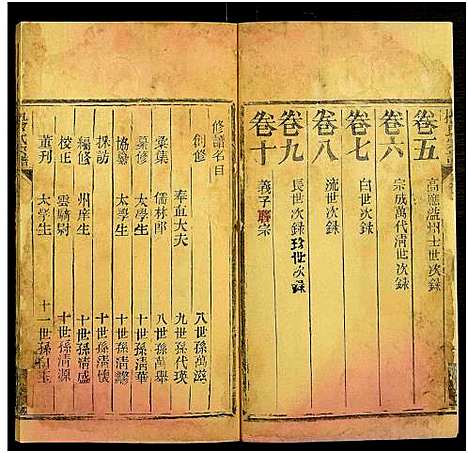 卷五 高應滋州士世次錄
卷六 宗成萬代清世次錄
卷七 白世次錄
卷八 沈世次錄
卷九 長世次錄珍世次錄
卷十 義子聯宗
修譜名目
創修 奉直大夫 八世孫萬滋
梁集 儒林郎 九世孫代瑛
纂修 太學生 八世孫萬舉
協纂 太學生 十世孫清華
採訪 十世孫清繆
編修 州庠生 十世孫清懷
校正 雲騎尉 十世孫清盛
董刊 太學生 十世孫清源
十一世孫